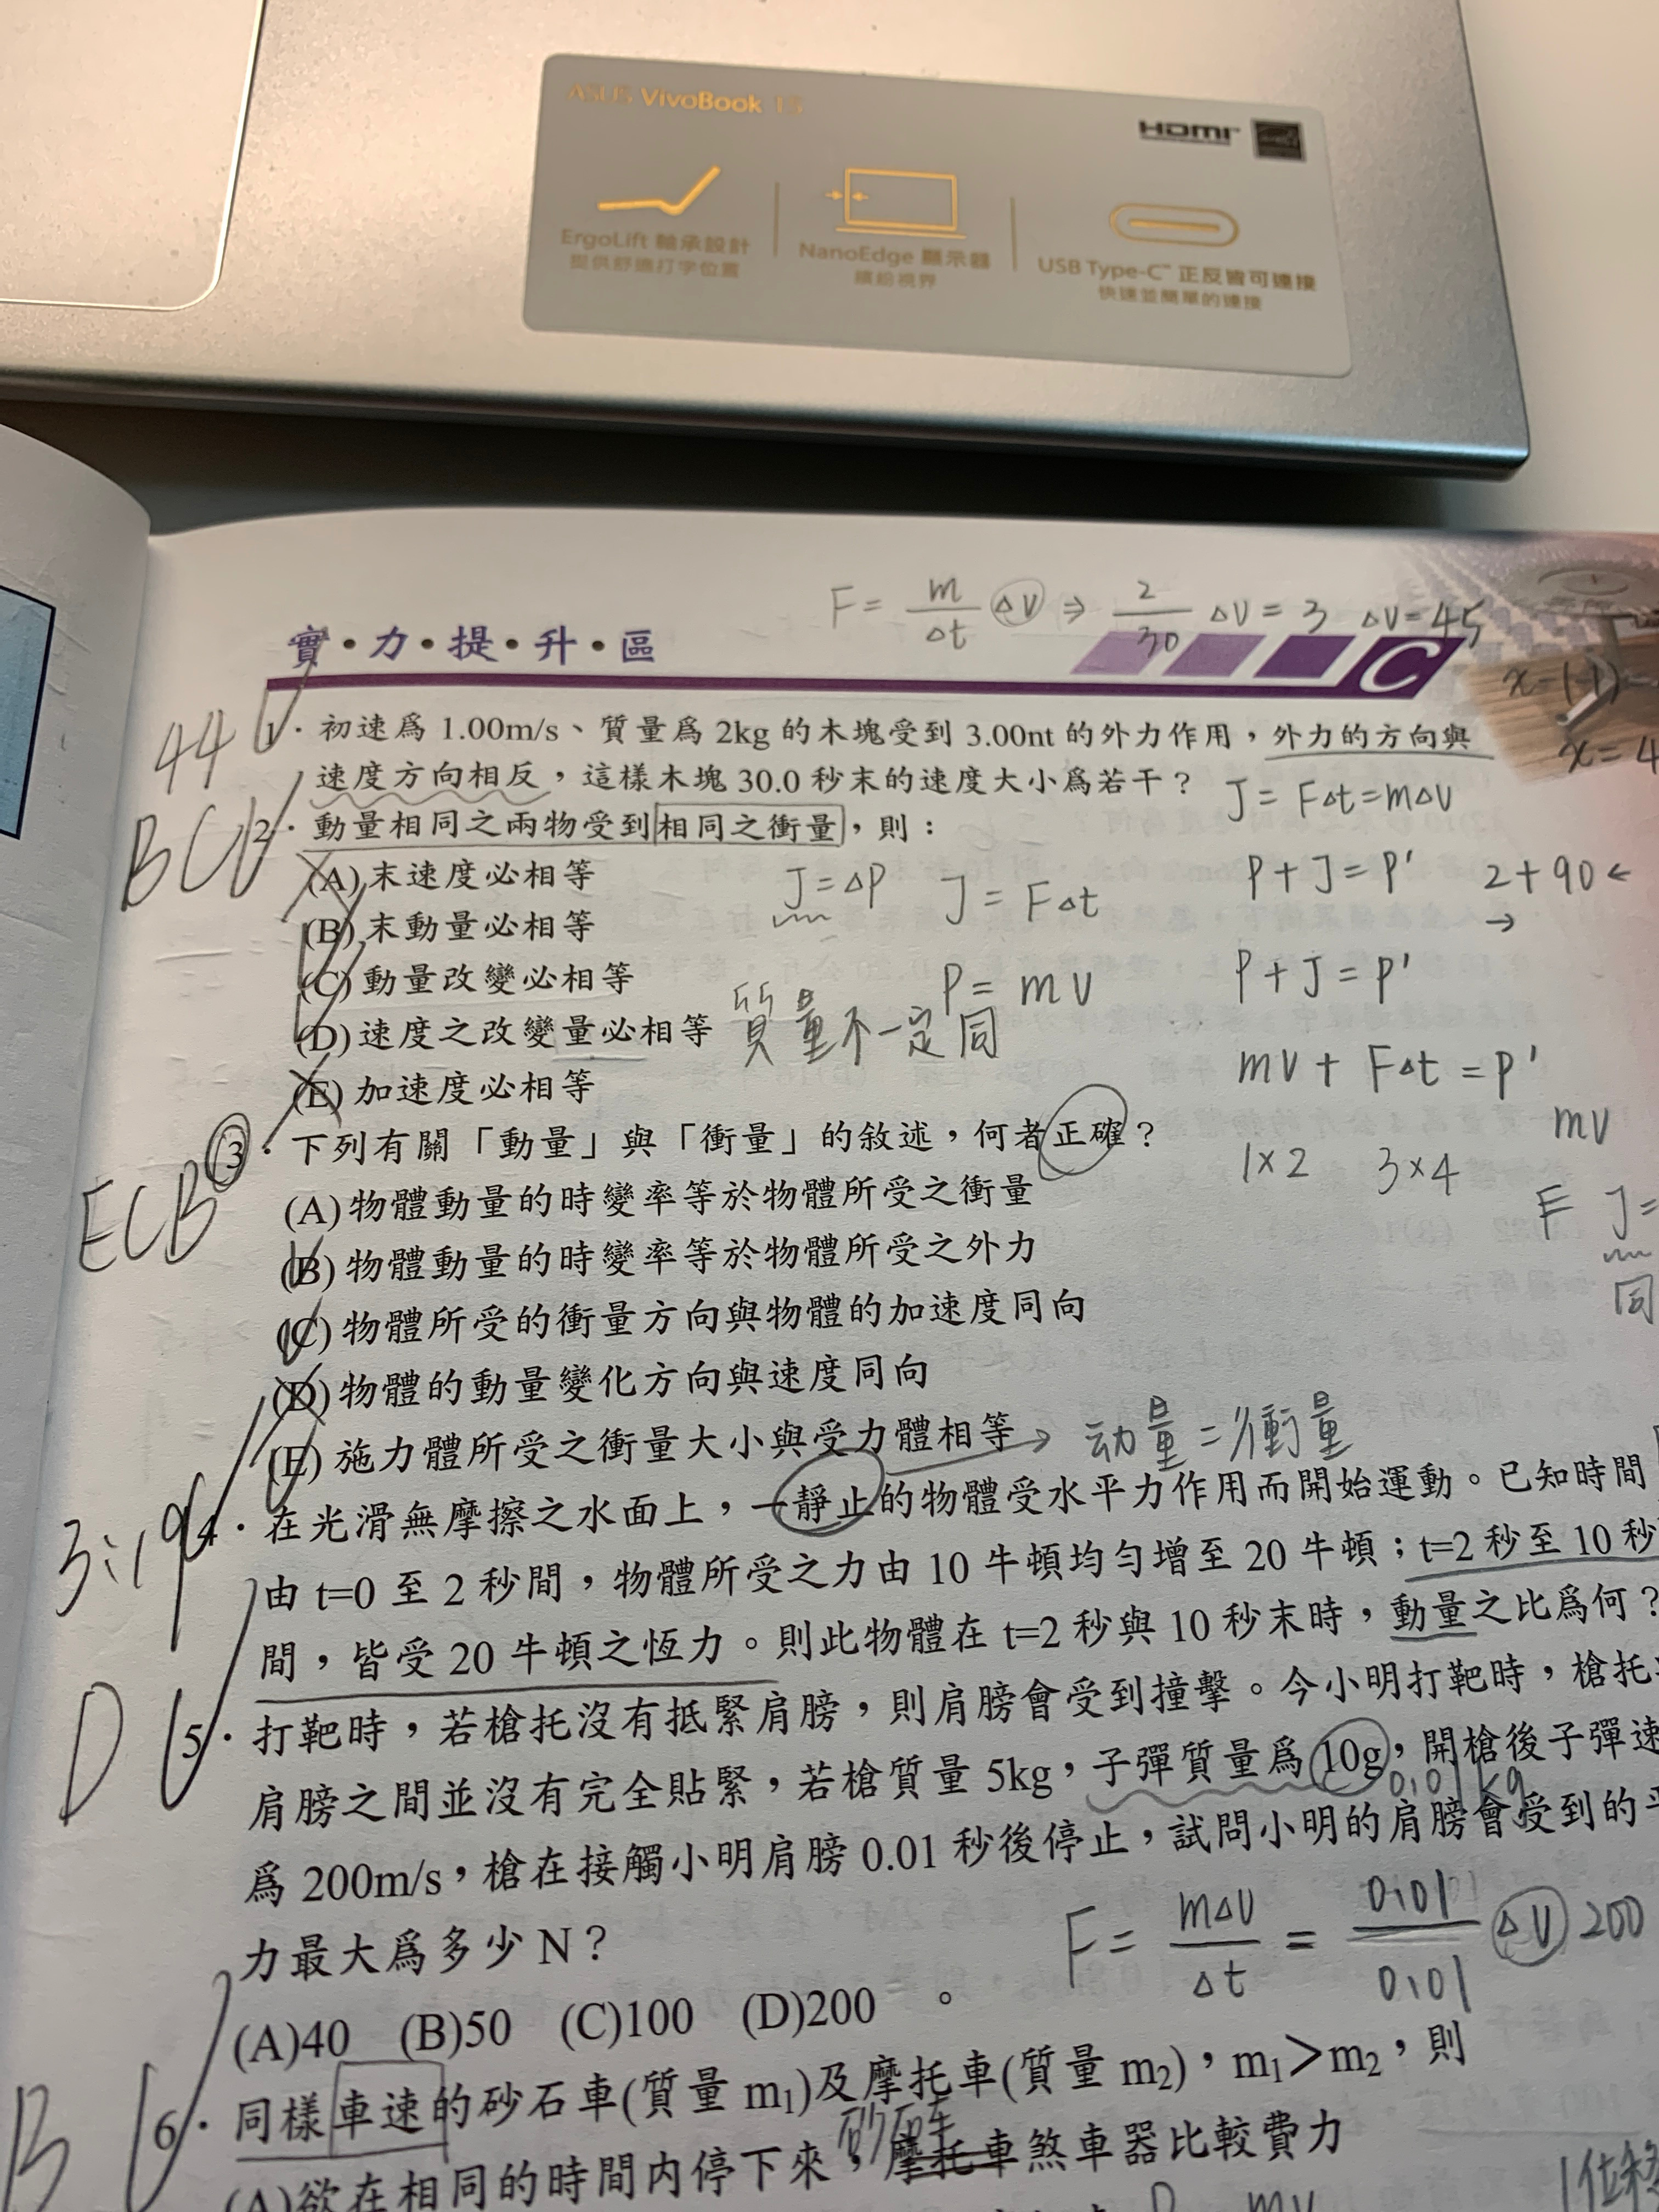 ASUS VivoBook 15
HDMI
ErgoLift 軸承設計
提供舒適打字位置
NanoEdge 顯示器
繽紛視界
USB Type-C™ 正反皆可連接
快速並簡單的連接
F = m/Δt ΔV ⇒ 2/30 ΔV = 3 ΔV = 45
實・力・提・升・區
C
x-(-1)
x = 4
44
1. 初速爲 1.00m/s、質量爲 2kg 的木塊受到 3.00nt 的外力作用，外力的方向與
速度方向相反，這樣木塊 30.0 秒末的速度大小爲若干？
J = FΔt = mΔV
BC
2. 動量相同之兩物受到相同之衝量，則：
(A)末速度必相等
J = ΔP J = FΔt
P + J = P' 2 + 90 ←
→
(B)末動量必相等
(C)動量改變必相等
P = mV
P + J = P'
(D)速度之改變量必相等
質量不一定同
(E)加速度必相等
mV + FΔt = P'
ECB
3. 下列有關「動量」與「衝量」的敘述，何者正確？
mV
1×2 3×4
(A)物體動量的時變率等於物體所受之衝量
F J =
同
(B)物體動量的時變率等於物體所受之外力
(C)物體所受的衝量方向與物體的加速度同向
(D)物體的動量變化方向與速度同向
(E)施力體所受之衝量大小與受力體相等
→ 动量 = 衝量
3:19
4. 在光滑無摩擦之水面上，一靜止的物體受水平力作用而開始運動。已知時間
由 t=0 至 2 秒間，物體所受之力由 10 牛頓均勻增至 20 牛頓；t=2 秒至 10 秒
間，皆受 20 牛頓之恆力。則此物體在 t=2 秒與 10 秒末時，動量之比爲何？
D
5. 打靶時，若槍托沒有抵緊肩膀，則肩膀會受到撞擊。今小明打靶時，槍托
肩膀之間並沒有完全貼緊，若槍質量 5kg，子彈質量爲 10g，開槍後子彈速
0.01 kg
爲 200m/s，槍在接觸小明肩膀 0.01 秒後停止，試問小明的肩膀會受到的平
力最大爲多少 N？
F = mΔV/Δt = 0.01/0.01 ΔV 200
(A)40 (B)50 (C)100 (D)200 。
B
6. 同樣車速的砂石車(質量 m₁)及摩托車(質量 m₂)，m₁＞m₂，則
砂石車
(A)欲在相同的時間內停下來，摩托車煞車器比較費力
P mV